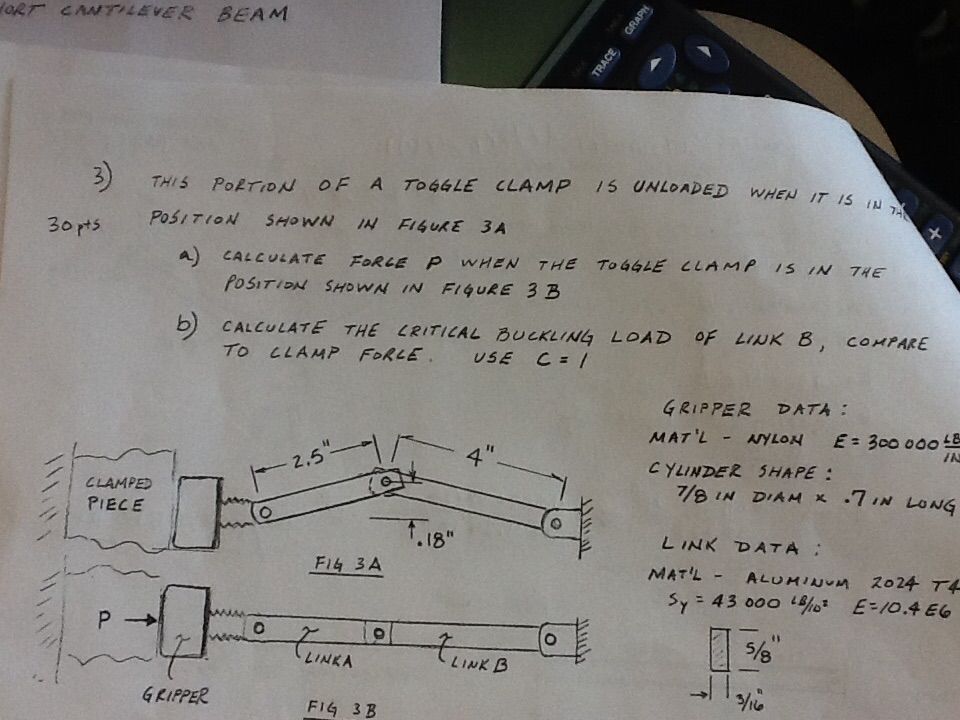 CANTILEVER BEAM
TRACE
GRAPH
3) THIS PORTION OF A TOGGLE CLAMP IS UNLOADED WHEN IT IS IN
30 pts POSITION SHOWN IN FIGURE 3A
a) CALCULATE FORCE P WHEN THE TOGGLE CLAMP IS IN THE
POSITION SHOWN IN FIGURE 3B
b) CALCULATE THE CRITICAL BUCKLING LOAD OF LINK B, COMPARE
TO CLAMP FORCE. USE C = 1
GRIPPER DATA:
MAT'L - NYLON E = 300 000 LB/IN
CYLINDER SHAPE:
7/8 IN DIAM x .7 IN LONG
LINK DATA:
MAT'L - ALUMINUM 2024 T4
Sy = 43 000 LB/IN² E = 10.4 E6
5/8"
3/16"
CLAMPED
PIECE
2.5"
4"
.18"
FIG 3A
P
LINK A
LINK B
GRIPPER
FIG 3B